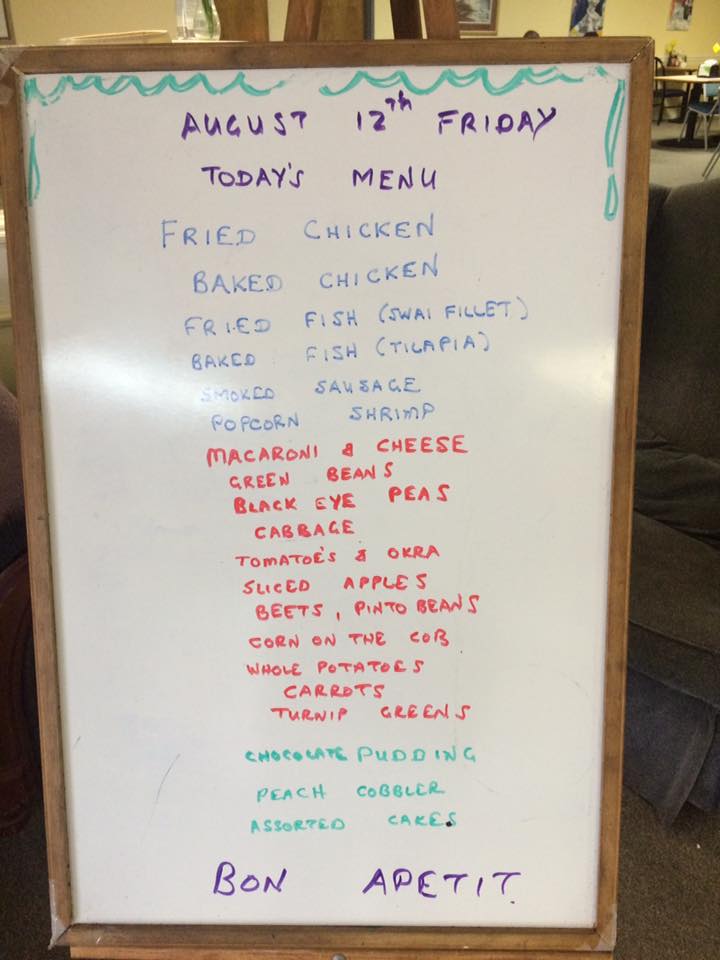 AUGUST 12Th FRIDAY
TODAY'S MENU
FRIED CHICKEN
BAKED CHICKEN
FRIED FISH (SWAI FILLET)
BAKED FISH (TILAPIA)
SMOKED SAUSAGE
POPCORN SHRIMP
MACARONI & CHEESE
GREEN BEANS
BLACK EYE PEAS
CABBAGE
TOMATOE'S & OKRA
SLICED APPLES
BEETS, PINTO BEANS
CORN ON THE COB
WHOLE POTATOES
CARROTS
TURNIP GREENS
CHOCOLATE PUDDING
PEACH COBBLER
ASSORTED CAKES
BON APETIT.